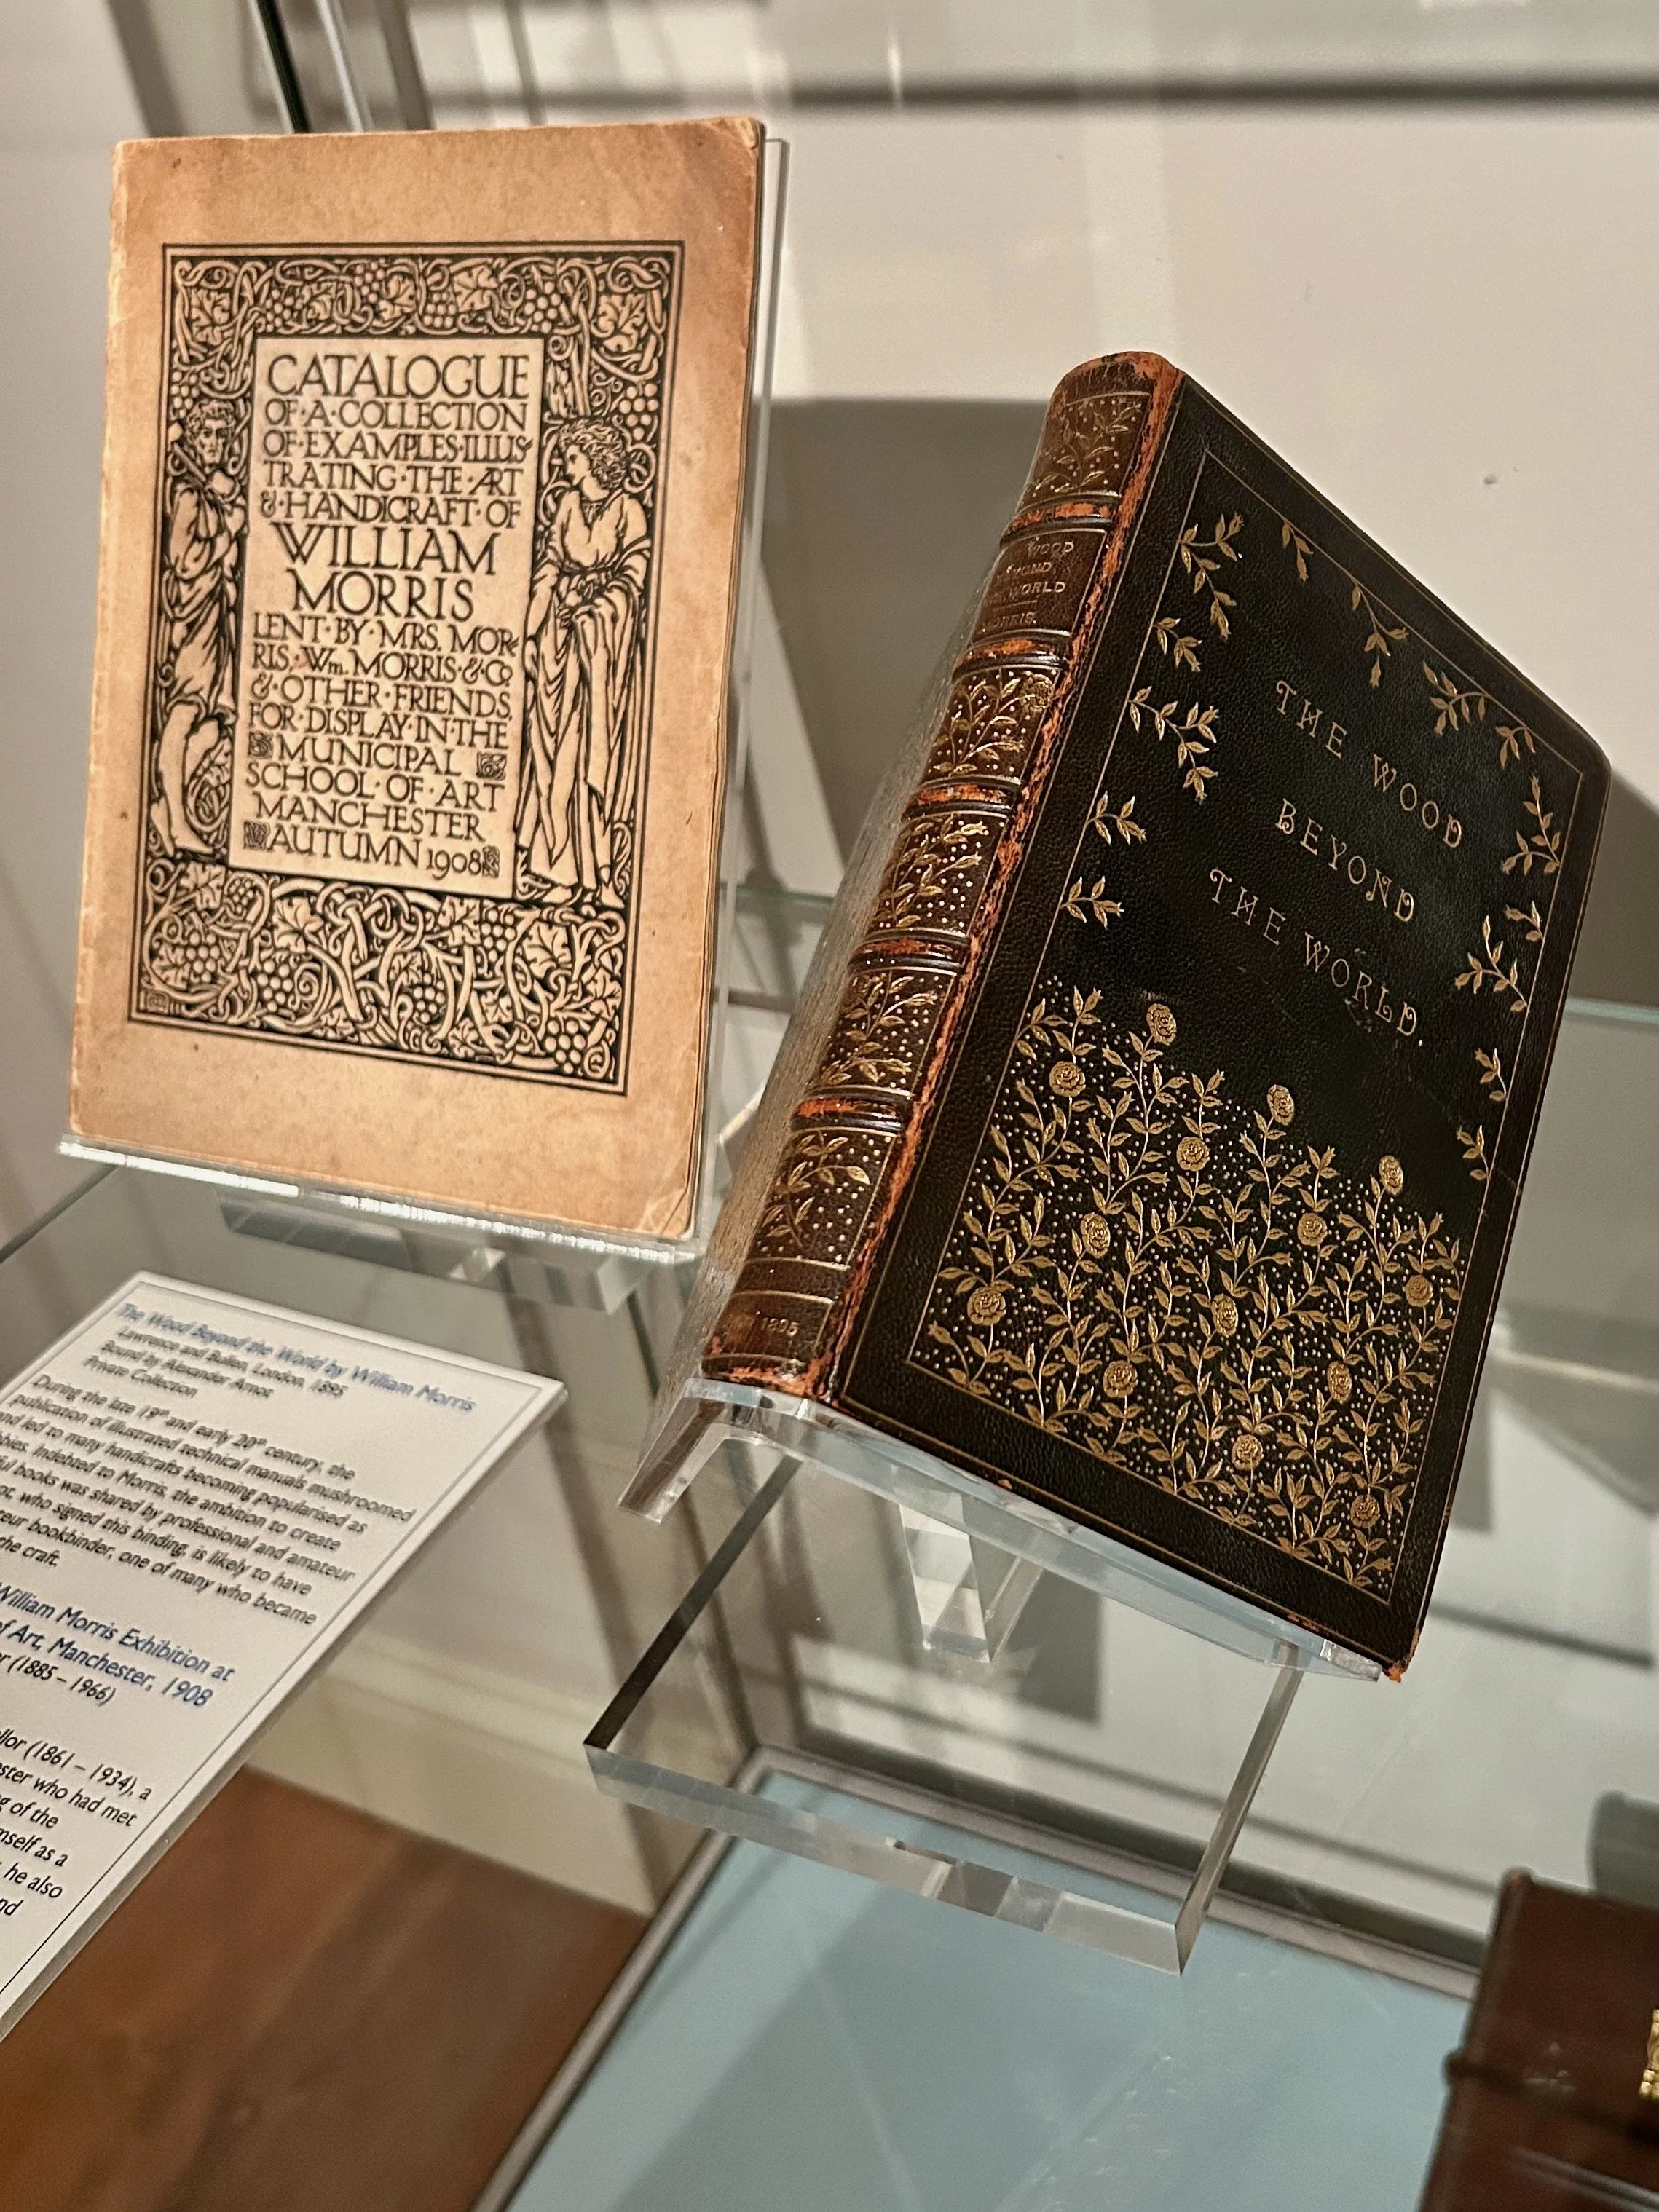 CATALOGUE
OF·A·COLLECTION
OF·EXAMPLES·ILLUS
TRATING·THE·ART
&·HANDICRAFT·OF
WILLIAM
MORRIS
LENT·BY·MRS. MOR-
RIS,·Wm. MORRIS·&·Co
&·OTHER·FRIENDS,
FOR·DISPLAY·IN·THE
MUNICIPAL
SCHOOL·OF·ART
MANCHESTER
AUTUMN 1908
WOOD
WORLD
THE WOOD
BEYOND
THE WORLD.
The Wood Beyond the World by William Morris
Lawrence and Bullen, London, 1895
Bound by Alexander Arnot
Private Collection
During the late 19th and early 20th century, the
publication of illustrated technical manuals mushroomed
and led to many handicrafts becoming popularised as
Indebted to Morris, the ambition to create
books was shared by professional and amateur
who signed this binding, is likely to have
bookbinder, one of many who became
the craft.
William Morris Exhibition at
of Art, Manchester, 1908
(1885 – 1966)
(1861 – 1934), a
who had met
of the
as a
he also